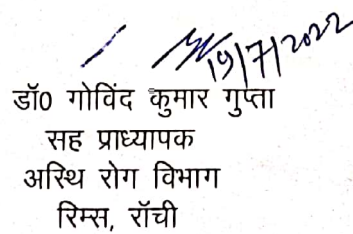 19/7/2022
डॉ0 गोविंद कुमार गुप्ता
सह प्राध्यापक
अस्थि रोग विभाग
रिम्स, रॉची